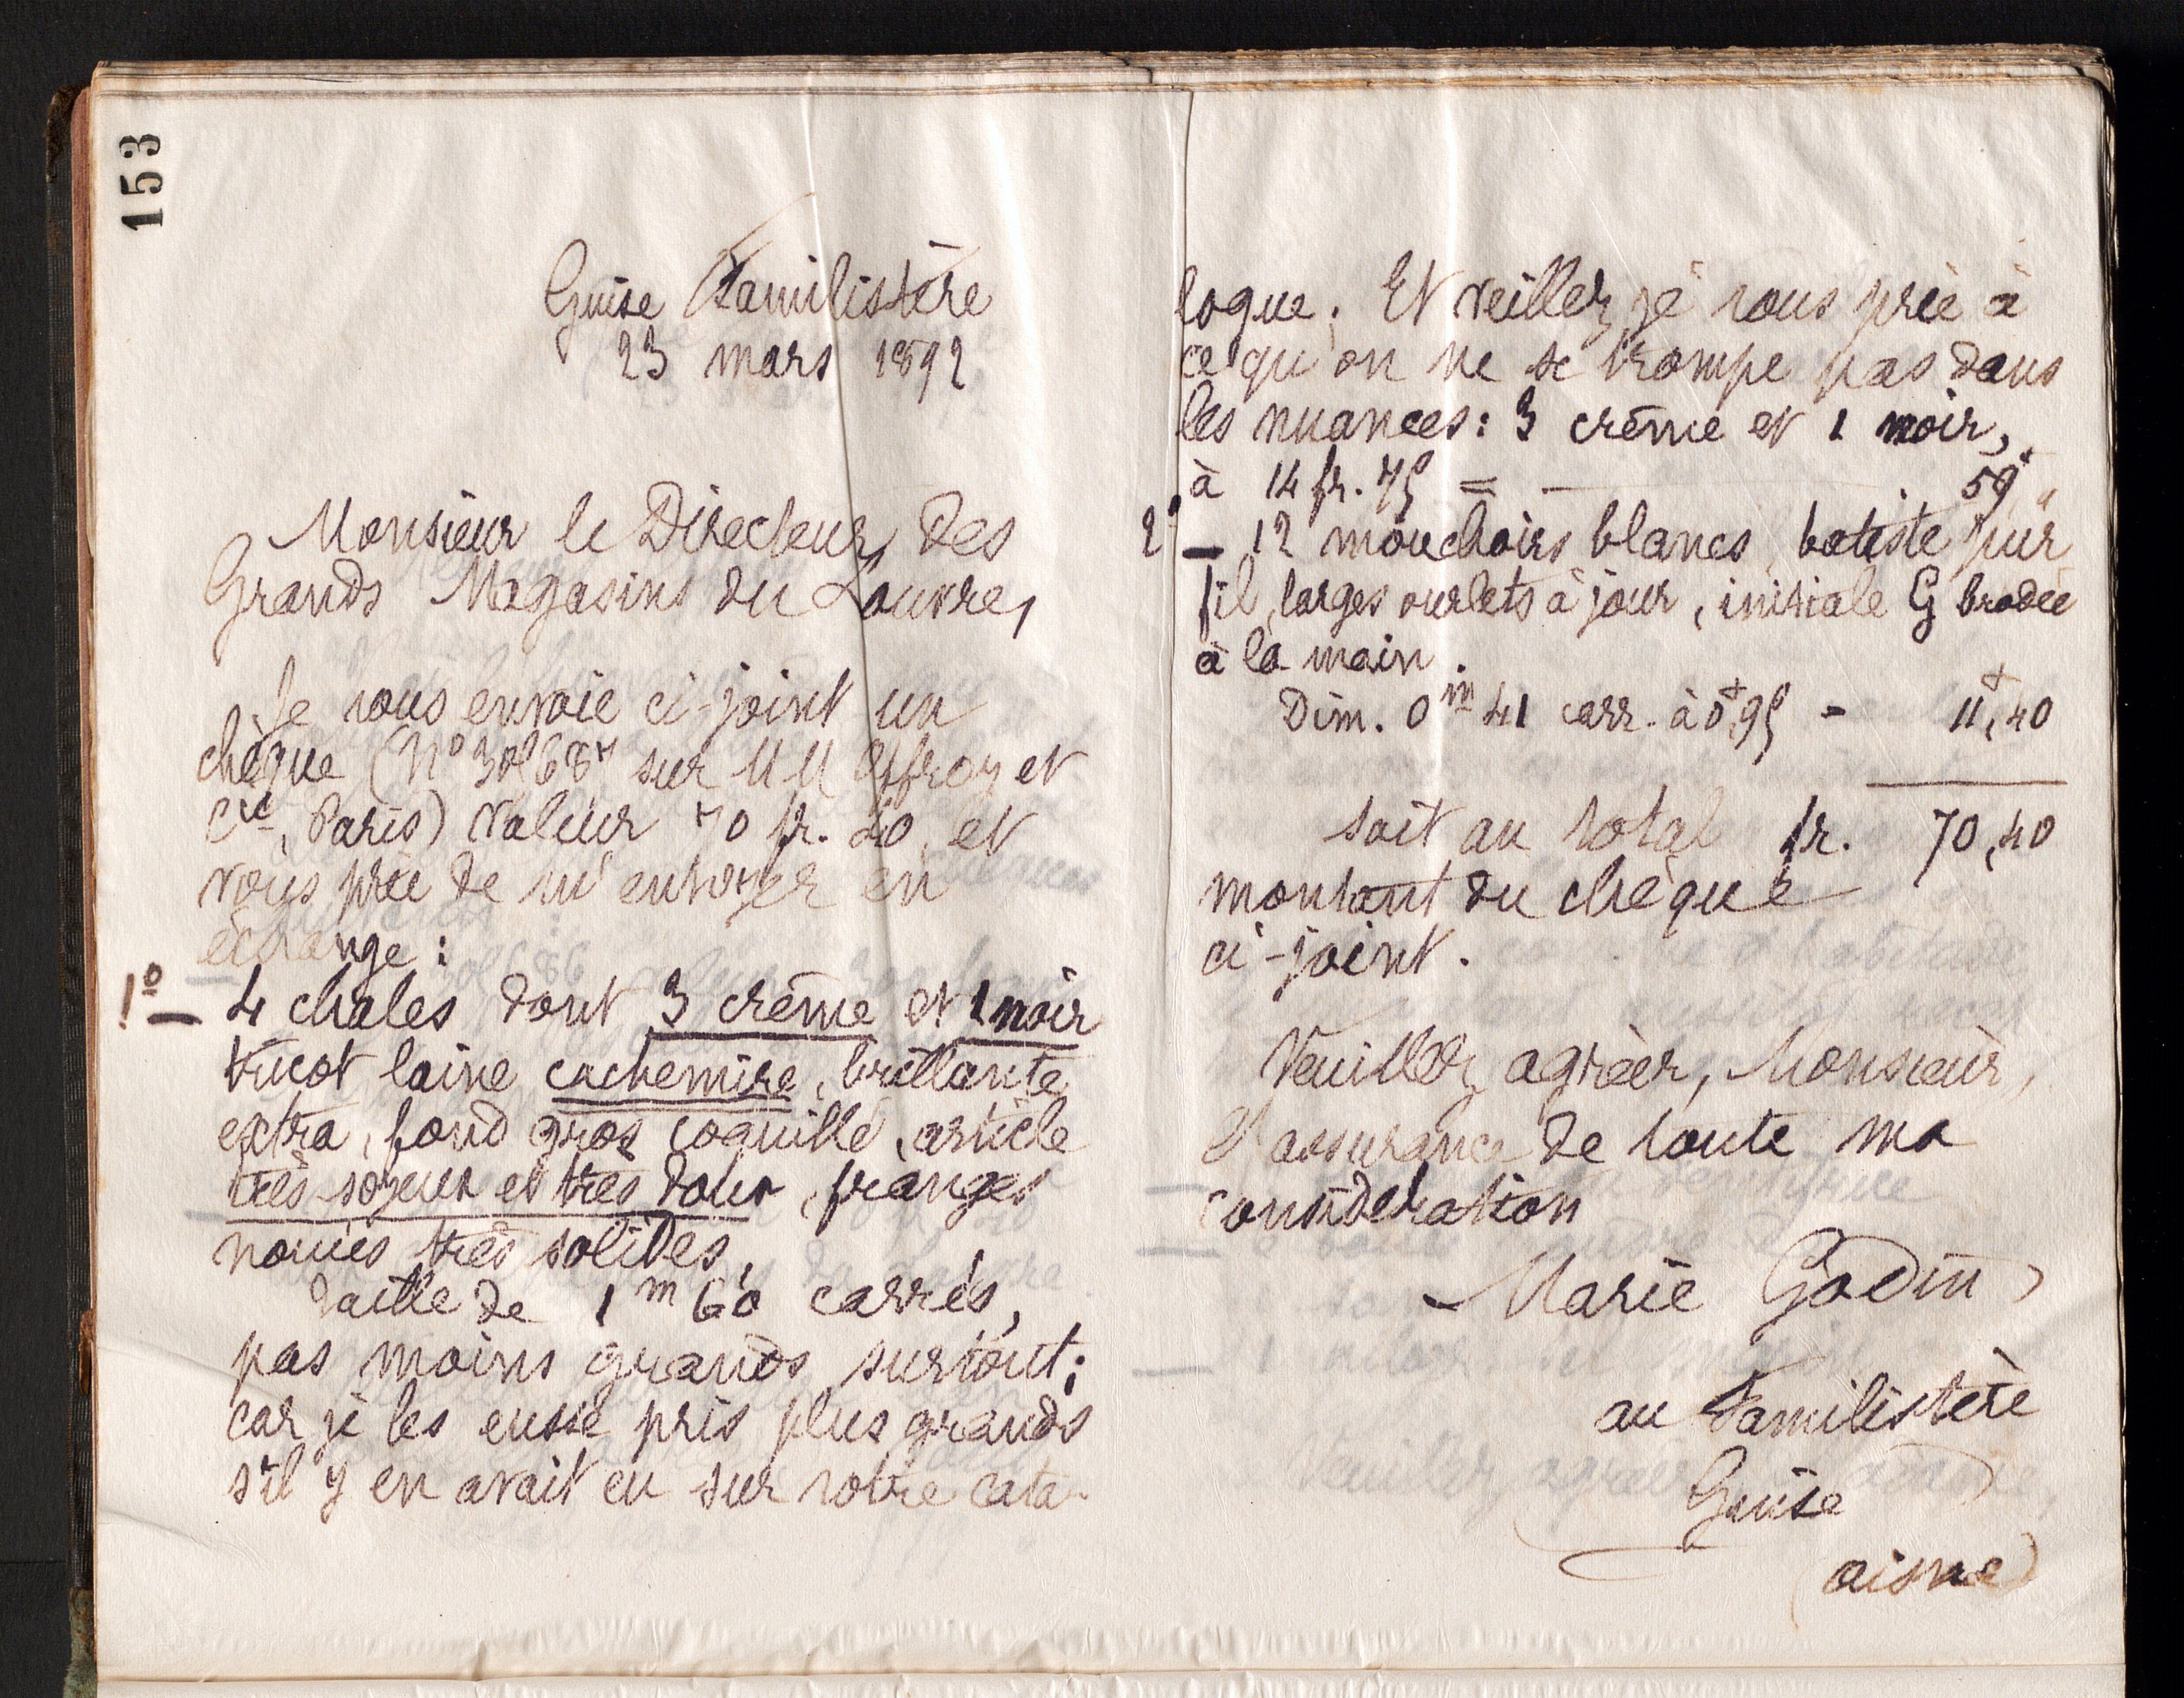 153
Guise Familistère
23 mars 1892
Monsieur le Directeur des
Grands Magasins du Louvre,
Je vous envoie ci-joint un
chèque (N° sur MM Offroy et
Cie, Paris) valeur 70 fr. 40, et
vous prie de m'envoyer en
échange :
1° — 4 chales dont 3 crême et 1 noir
tricot laine cachemire, brillante
extra, fond gros coquillé, article
très soyeux et très doux, franges
nouées très solides,
taille de 1m 60 carrés,
pas moins grands surtout ;
car je les eusse pris plus grands
s'il y en avait eu sur votre cata-
logue. Et veillez, je vous prie à
ce qu'on ne se trompe pas dans
les nuances : 3 crême et 1 noir,
à 14 fr. 75 = — 59f "
2° — 12 mouchoirs blancs, batiste pur
fil, larges ourlets à jour, initiale G brodée
à la main.
Dim. 0m 41 carr. à 0f,95 - 11f,40
soit au total fr. 70,40
montant du chèque
ci-joint.
Veuillez agréer, Monsieur,
l'assurance de toute ma
considération
Marie Godin
au Familistère
Guise
(aisne)